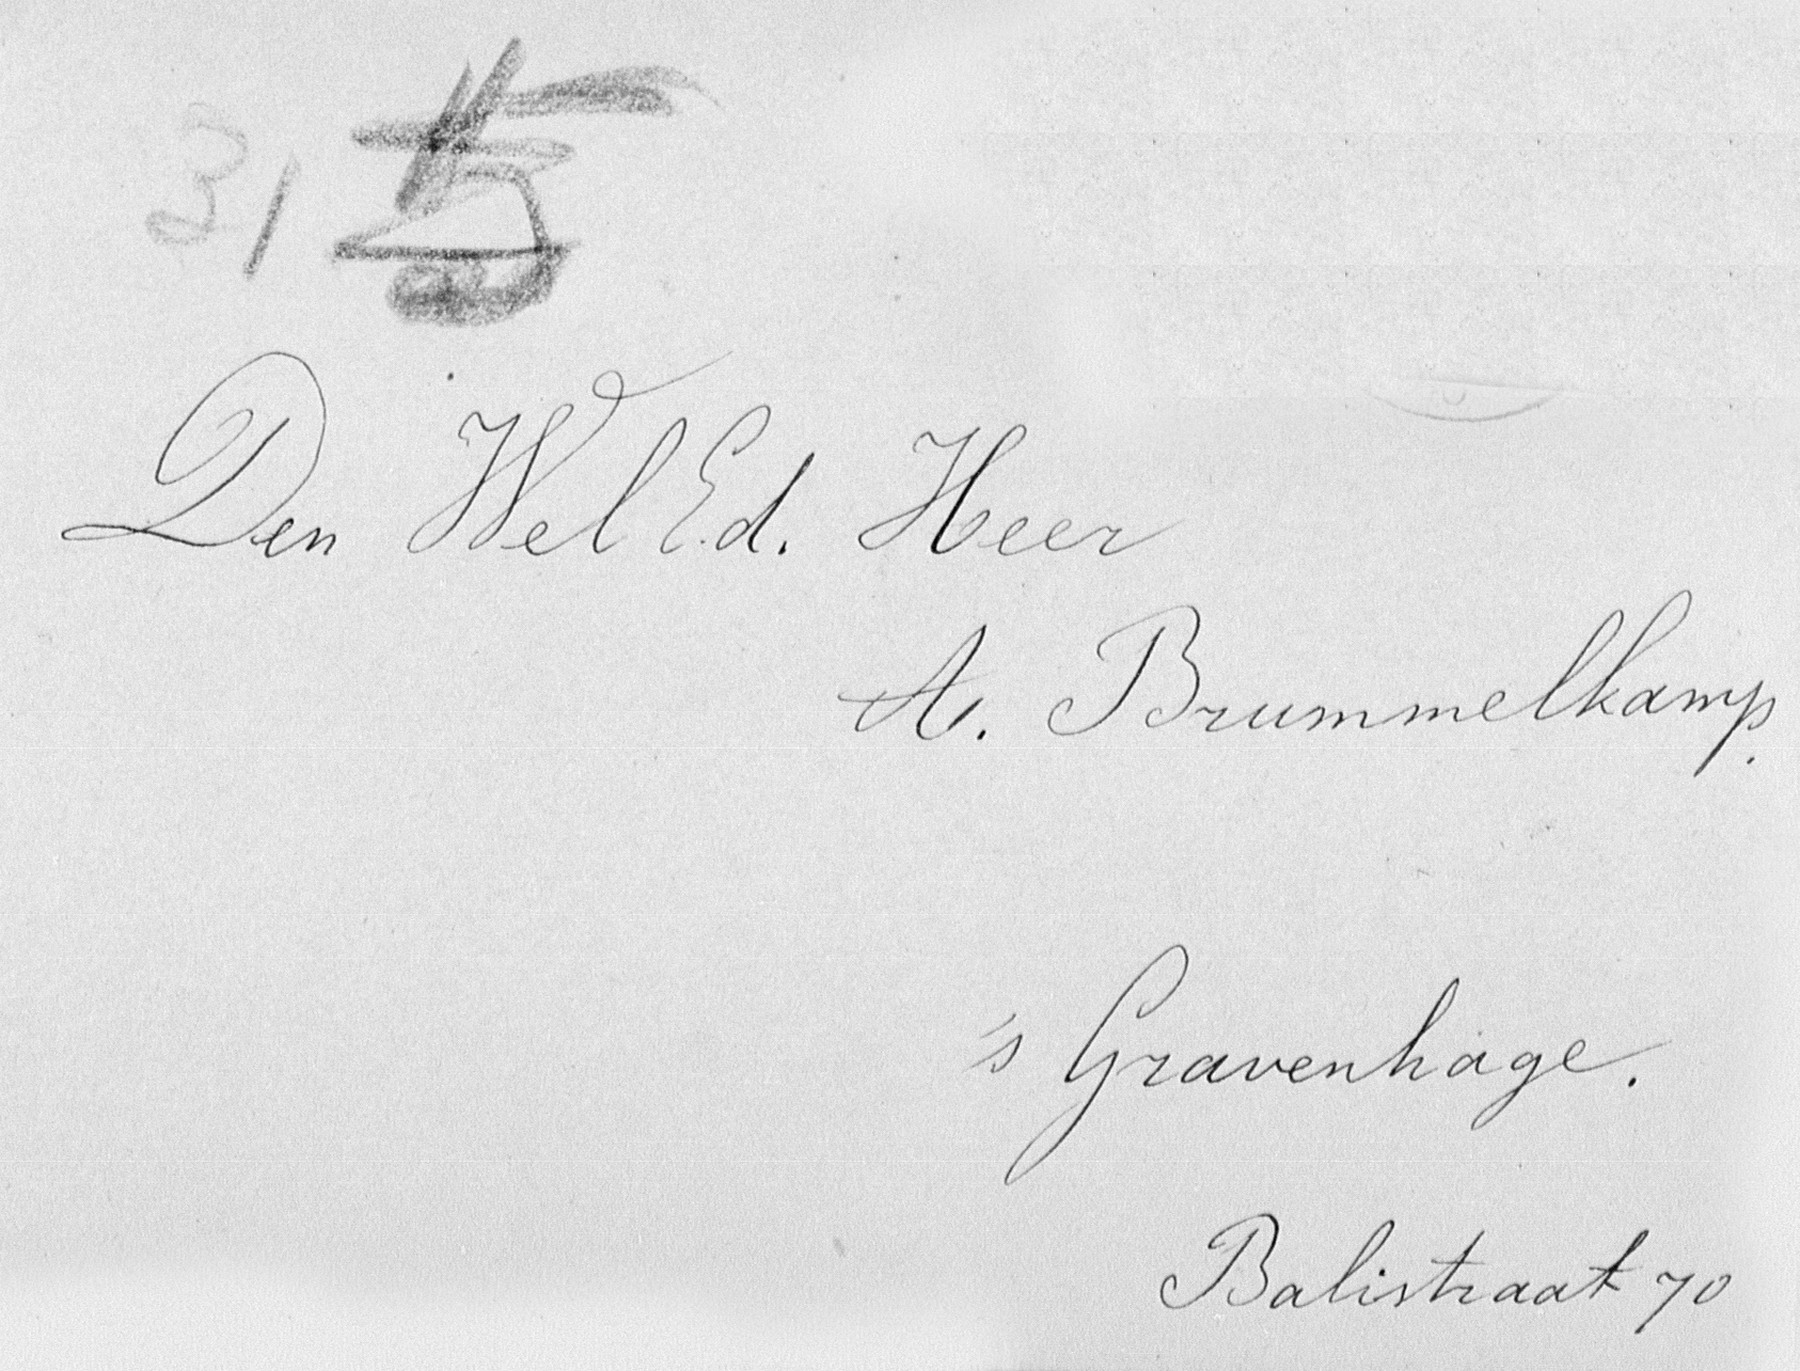 31
Den Wel Ed. Heer
A. Brummelkamp.
's Gravenhage.
Balistraat 70